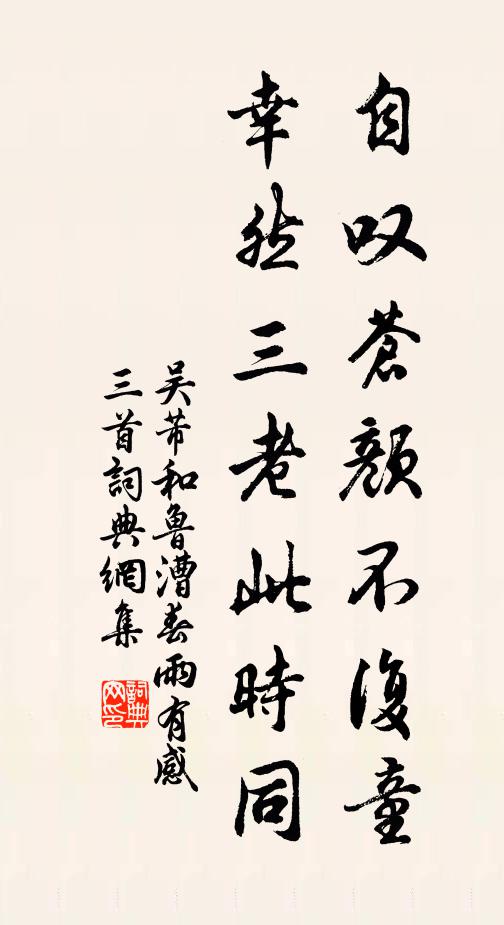 自叹蒼顏不復童
幸然三老此時同
吴芾和魯漕春雨有感
三首詞典網集
詞典网印